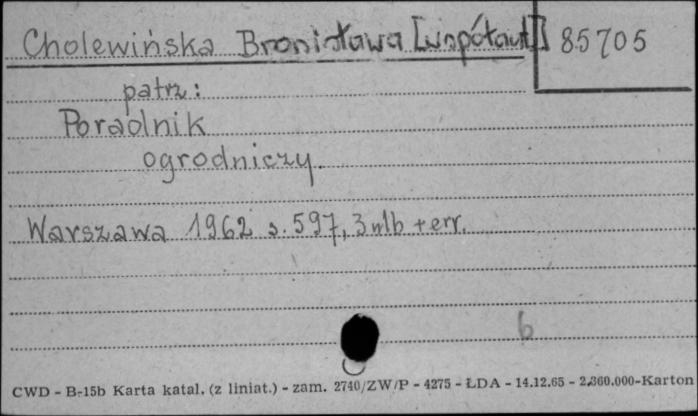 Cholewińska Bronisława [współaut] 85705
patrz:
Poradnik
ogrodniczy.
Warszawa 1962 s. 597, 3 nlb + err.
6
CWD - B-15b Karta katal. (z liniat.) - zam. 2740/ZW/P - 4275 - ŁDA - 14.12.65 - 2.360.000-Karton